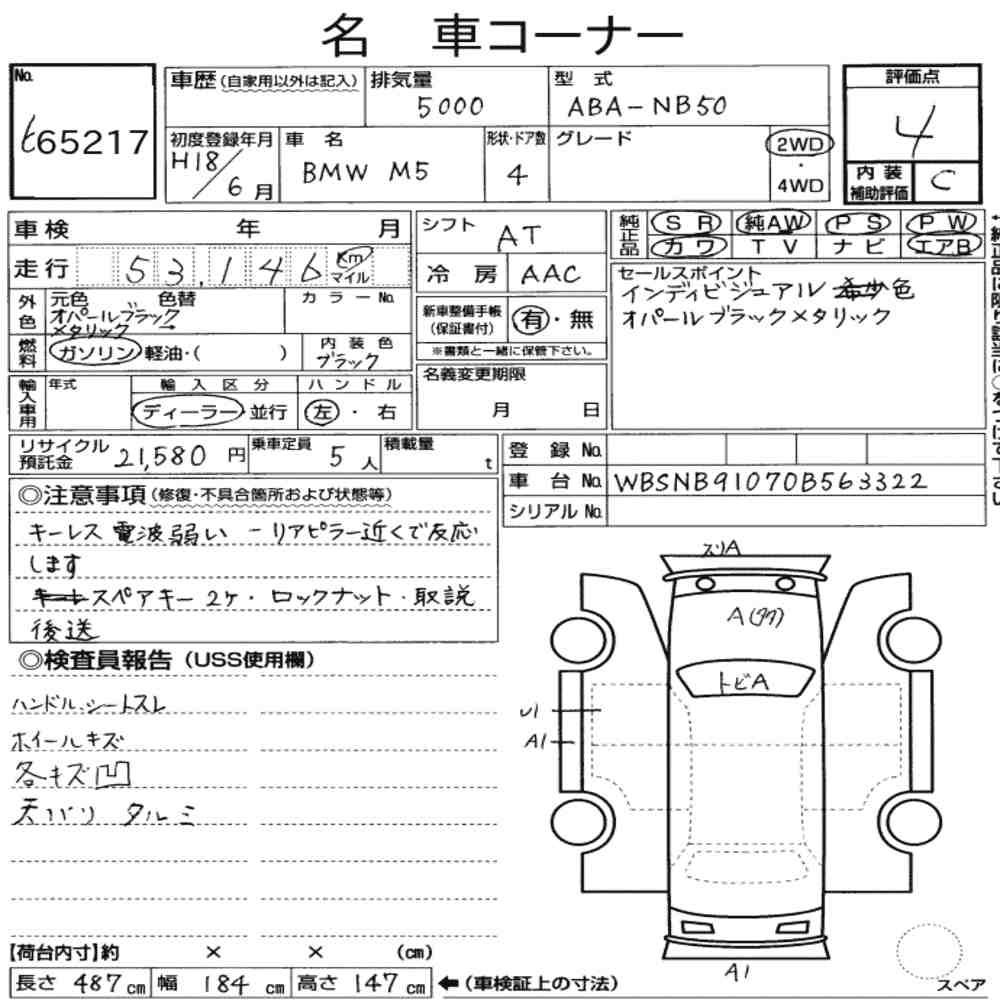 名 車コーナー
No.
65217
車歴（自家用以外は記入）
排気量
5000
型 式
ABA-NB50
評価点
4
初度登録年月
H18/6月
車 名
BMW M5
形状・ドア数
4
グレード
2WD
・
4WD
内装
補助評価
C
車検 年 月
シフト
AT
純正品
SR 純AW PS PW
カワ TV ナビ エアB
走行
53,146
Km
マイル
冷房
AAC
セールスポイント
インディビジュアル 希少色
オパールブラックメタリック
外色
元色 色替
オパールブラック
メタリック→
カラーNo.
新車整備手帳
（保証書付）
有・無
※書類と一緒に保管下さい。
燃料
ガソリン 軽油・（ ）
内装色
ブラック
名義変更期限
月 日
輸入車用
年式
輸入区分
ディーラー・並行
ハンドル
左・右
リサイクル
預託金
21,580円
乗車定員
5人
積載量
t
登録No.
車台No.
WBSNB91070B563322
シリアルNo.
◎注意事項（修復・不具合箇所および状態等）
キーレス電波弱い－リアピラー近くで反応
します
スペアキー2ケ・ロックナット・取説
後送
◎検査員報告（USS使用欄）
ハンドル・シートスレ
ホイールキズ
各キズ凹
天バリ タルミ
スリA
A(ワク)
トビA
U1
A1
A1
【荷台内寸】約 × × （cm）
長さ 487cm 幅 184cm 高さ 147cm
←（車検証上の寸法）
スペア